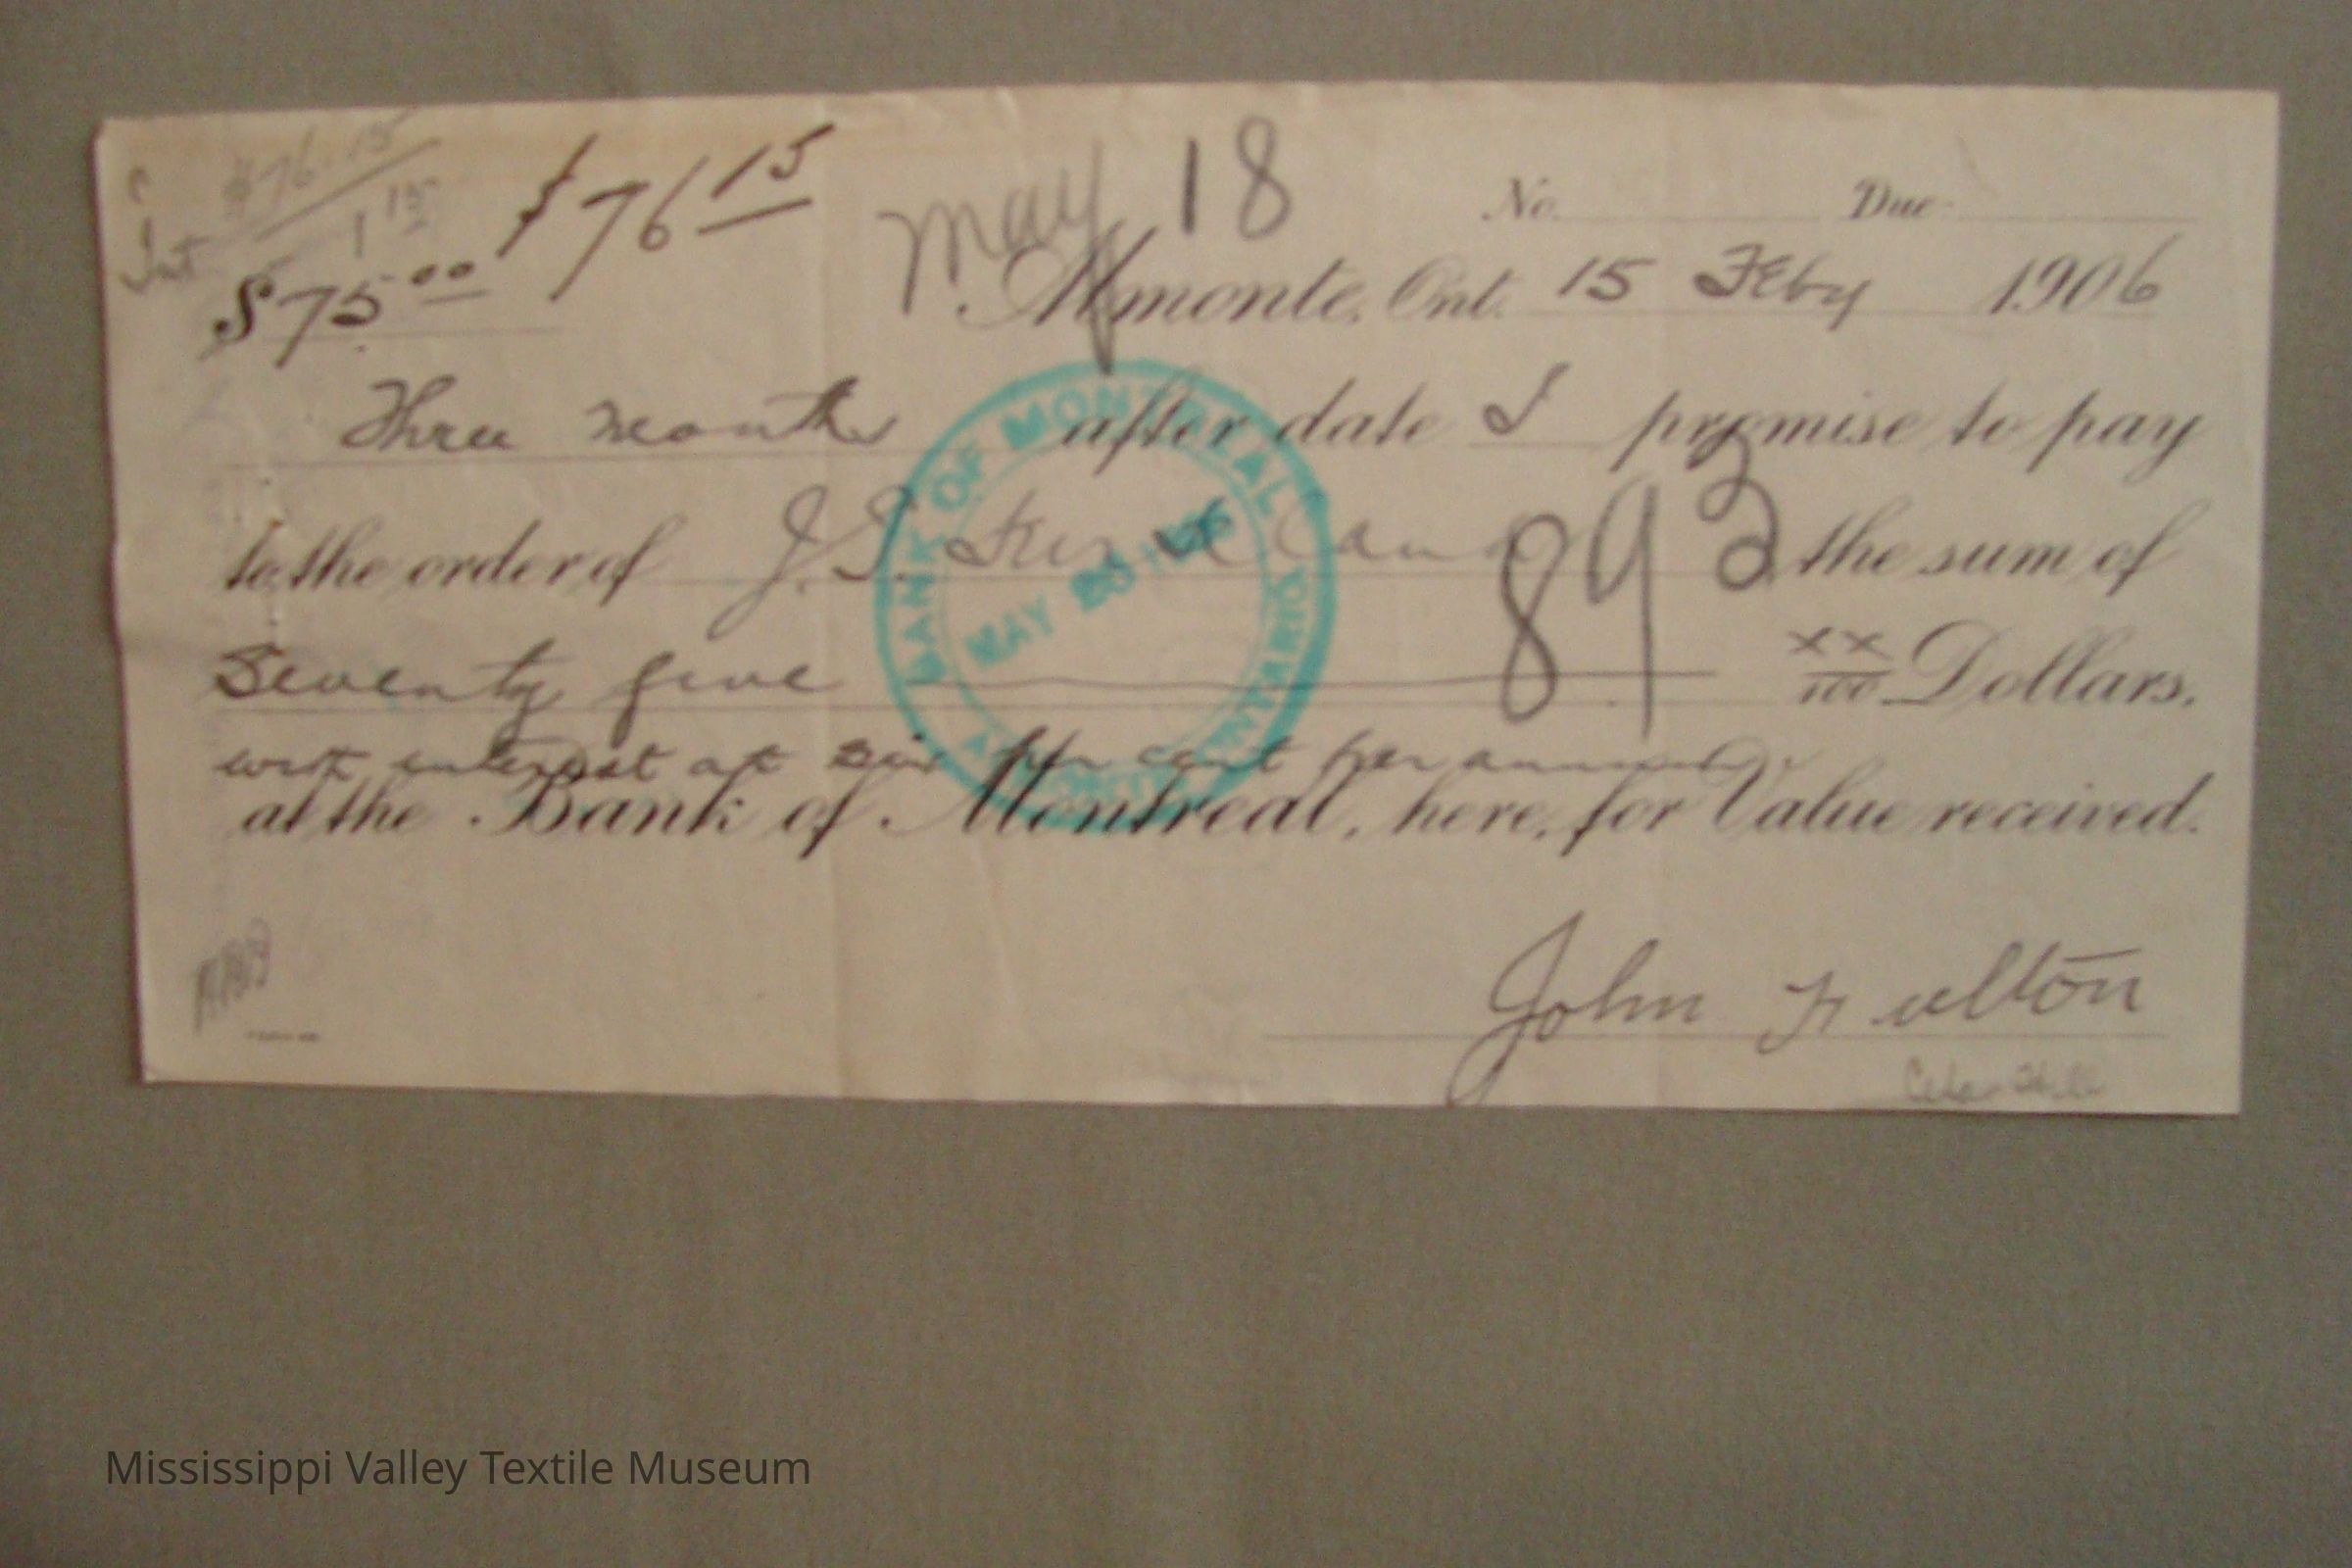 $76.15
1 15
Int
$76 15
$75 00
May 18
No. Due
Almonte, Ont. 15 Feby 1906
Three months after date I promise to pay
to the order of J.T. Kirkland the sum of
893
Seventy five xx/100 Dollars.
with interest at six per cent per annum
at the Bank of Montreal, here, for Value received.
BANK OF MONTREAL
MAY
ONTARIO
John Fulton
Cedar Hill
Mississippi Valley Textile Museum